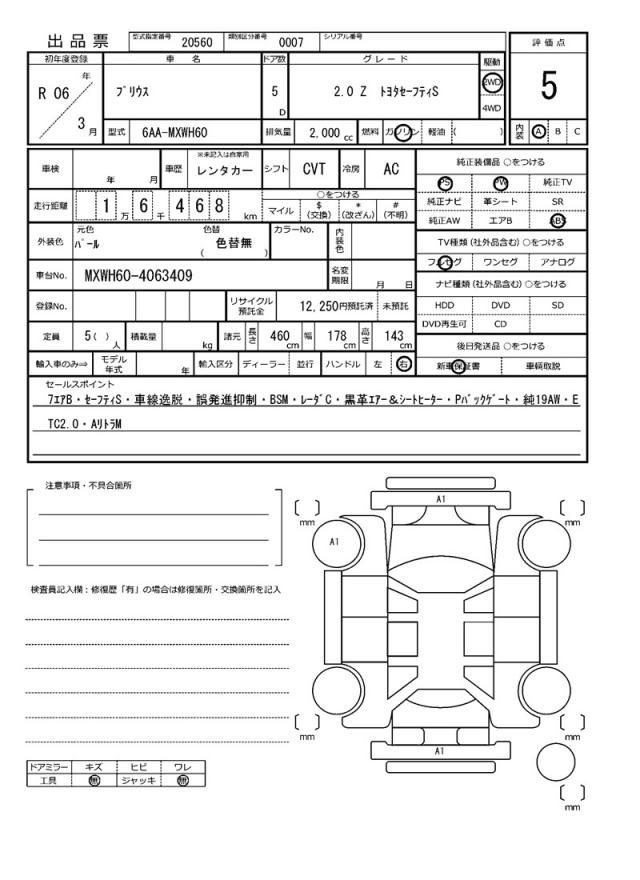 出品票
型式指定番号 20560 類別区分番号 0007 シリアル番号
評価点
5
内装 A B C
初年度登録 車名 ドア数 グレード 駆動
R 06 年 3 月
プリウス 5 D 2.0 Z トヨタセーフティS 2WD 4WD
型式 6AA-MXWH60 排気量 2,000 cc 燃料 ガソリン 軽油 ( )
車検 年 月 車歴 ※未記入は自家用 レンタカー シフト CVT 冷房 AC
走行距離 1 万 6 千 4 6 8 km
○をつける
マイル $ (交換) * (改ざん) # (不明)
外装色 元色 パール 色替 色替無 ( ) カラーNo. 内装色
車台No. MXWH60-4063409 名変期限 月 日
登録No. リサイクル預託金 12,250円預託済 未預託
定員 5( ) 人 積載量 kg 諸元 長さ 460 cm 幅 178 cm 高さ 143 cm
輸入車のみ⇨ モデル年式 年 輸入区分 ディーラー 並行 ハンドル 左 右
純正装備品 ○をつける
PS PW 純正TV
純正ナビ 革シート SR
純正AW エアB ABS
TV種類 (社外品含む) ○をつける
フルセグ ワンセグ アナログ
ナビ種類 (社外品含む) ○をつける
HDD DVD SD
DVD再生可 CD
後日発送品 ○をつける
新車保証書 車輌取説
セールスポイント
7エアB・セーフティS・車線逸脱・誤発進抑制・BSM・レーダC・黒革エアー&シートヒーター・Pバックゲート・純19AW・E
TC2.0・AリトラM
注意事項・不具合箇所
検査員記入欄:修復歴「有」の場合は修復箇所・交換箇所を記入
A1
mm
mm
A1
mm
mm
A1
mm
ドアミラー キズ ヒビ ワレ
工具 無 ジャッキ 無